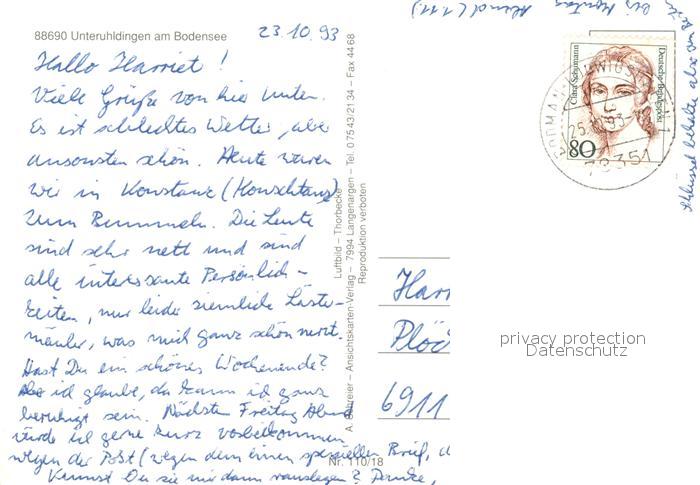 88690 Unteruhldingen am Bodensee
23.10.93
Hallo Harriet!
Viele Grüße von hier unten.
Es ist schlechtes Wetter, aber
ansonsten schön. Heute waren
wir in Konstanz (Konschtanz)
zum Bummeln. Die Leute
sind sehr nett und sind
alle interessante Persönlich-
keiten, nur leider ziemliche Läste-
mäuler, was mich ganz schön nervt.
Hast Du ein schönes Wochenende?
ich glaube, da kann ich ganz
beruhigt sein. Nächsten Freitag Abend
würde ich gerne kurz vorbeikommen
wegen der Post (wegen dem einen speziellen Brief, d
Kannst Du sie mir dann rauslegen? Danke,
bis Montag Abend (!!!)
Schlüssel behalten aber
A. Schreier – Ansichtskarten-Verlag – 7994 Langenargen – Tel. 07543/2134 – Fax 4468
Luftbild – Thorbecke
Reproduktion verboten
Nr. 110/18
Clara Schumann
Deutsche Bundespost
80
25.10.93
78351
1
Harr
Plöc
6911
privacy protection
Datenschutz